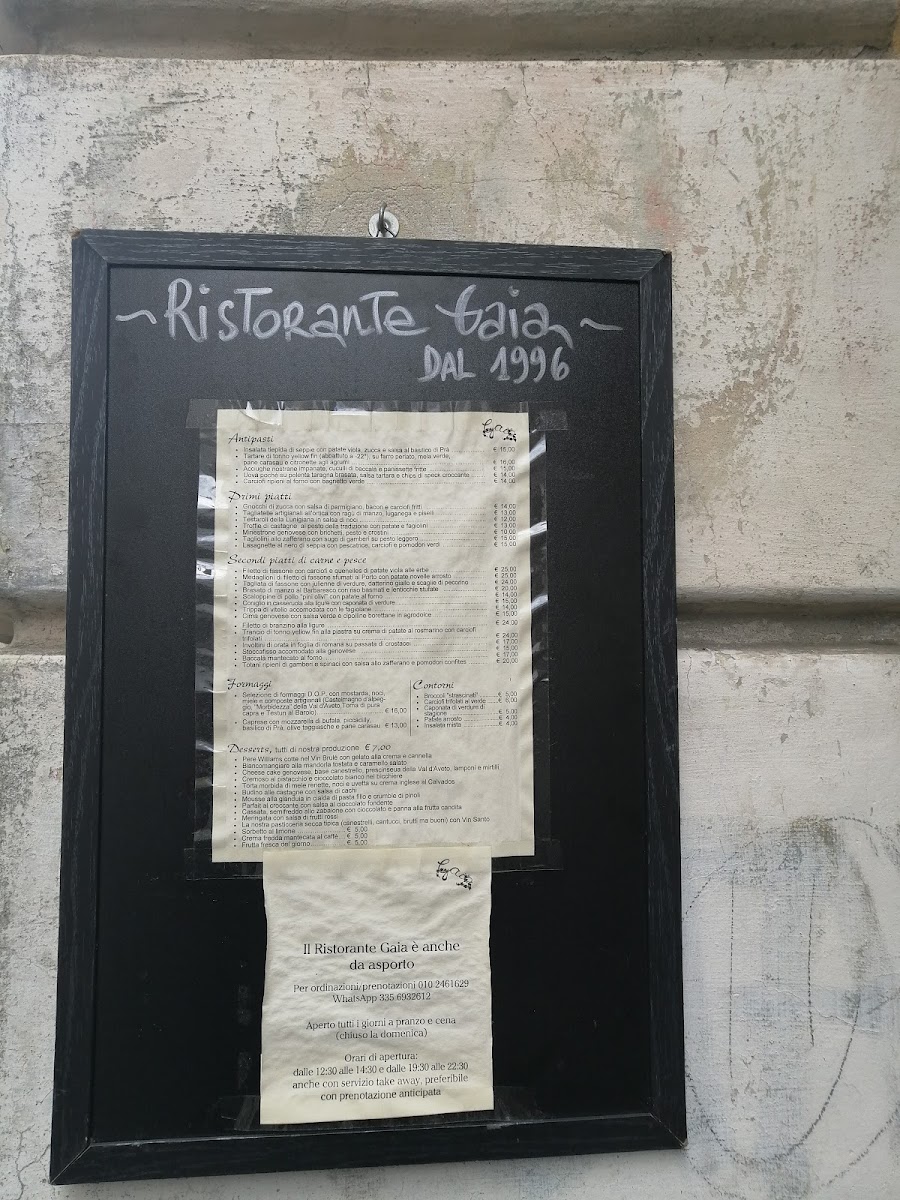 ~ Ristorante Gaia ~
DAL 1996
Antipasti
Insalata tiepida di seppie con patate viola, zucca e salsa al basilico di Prà € 16,00
Tartare di tonno yellow fin (abbattuto a -22°), su farro perlato, mela verde,
pane carasau e citronette agli agrumi € 16,00
Acciughe nostrane impanate, cuculli di baccalà e panissette fritte € 15,00
Uova poché su polenta taragna brasata, salsa tartara e chips di speck croccante € 14,00
Carciofi ripieni al forno con bagnetto verde € 14,00
Primi piatti
Gnocchi di zucca con salsa di parmigiano, bacon e carciofi fritti € 14,00
Tagliatelle artigianali all'ortica con ragù di manzo, luganega e piselli € 13,00
Testaroli della Lunigiana in salsa di noci € 12,00
Troffie di castagne al pesto della tradizione con patate e fagiolini € 13,00
Minestrone genovese con bricheti, pesto e crostini € 10,00
Tagliolini allo zafferano con sugo di gamberi su pesto leggero € 15,00
Lasagnette al nero di seppia con pescatrice, carciofi e pomodori verdi € 15,00
Secondi piatti di carne e pesce
Filetto di fassone con carciofi e quenelles di patate viola alle erbe € 25,00
Medaglioni di filetto di fassone sfumati al Porto con patate novelle arrosto € 25,00
Tagliata di fassone con julienne di verdure, datterino giallo e scaglie di pecorino € 24,00
Brasato di manzo al Barbaresco con riso basmati e lenticchie stufate € 20,00
Scaloppine di pollo "pini olivi" con patate al forno € 14,00
Coniglio in casseruola alla ligure con caponata di verdure € 15,00
Trippa di vitello accomodata con le fagiolane € 14,00
Cima genovese con salsa verde e cipolline borettane in agrodolce € 15,00
Filetto di branzino alla ligure € 24,00
Trancio di tonno yellow fin alla piastra su crema di patate al rosmarino con carciofi
trifolati € 24,00
Involtini di orata in foglia di romana su passata di crostacei € 17,00
Stoccafisso accomodato alla genovese € 18,00
Baccalà mantecato al forno € 17,00
Totani ripieni di gamberi e spinaci con salsa allo zafferano e pomodori confites € 20,00
Formaggi
Selezione di formaggi D.O.P. con mostarda, noci,
miele e composte artigianali (Castelmagno d'alpeg-
gio, "Morbidezza" della Val d'Aveto, Toma di pura
capra e Testun al Barolo) € 16,00
Caprese con mozzarella di bufala, piccadilly,
basilico di Prà, olive taggiasche e pane carasau € 13,00
Contorni
Broccoli "strascinati" € 5,00
Carciofi trifolati al verde € 8,00
Caponata di verdure di
stagione € 5,00
Patate arrosto € 4,00
Insalata mista € 4,00
Desserts, tutti di nostra produzione € 7,00
Pere Williams cotte nel Vin Brulé con gelato alla crema e cannella
Biancomangiare alla mandorla tostata e caramello salato
Cheese cake genovese, base canestrello, prescinseua della Val d'Aveto, lamponi e mirtilli
Cremoso al pistacchio e cioccolato bianco nel bicchiere
Torta morbida di mele renette, noci e uvetta su crema inglese al Calvados
Budino alle castagne con salsa di cachi
Mousse alla gianduia in cialda di pasta fillo e crumble di pinoli
Parfait al croccante con salsa al cioccolato fondente
Cassata, semifreddo allo zabaione con cioccolato e panna alla frutta candita
Meringata con salsa di frutti rossi
La nostra pasticceria secca tipica (canestrelli, cantucci, brutti ma buoni) con Vin Santo
Sorbetto al limone € 5,00
Crema fredda mantecata al caffè € 5,00
Frutta fresca del giorno € 5,00
Il Ristorante Gaia è anche
da asporto
Per ordinazioni/prenotazioni 010 2461629
WhatsApp 335 6932612
Aperto tutti i giorni a pranzo e cena
(chiuso la domenica)
Orari di apertura:
dalle 12:30 alle 14:30 e dalle 19:30 alle 22:30
anche con servizio take away, preferibile
con prenotazione anticipata